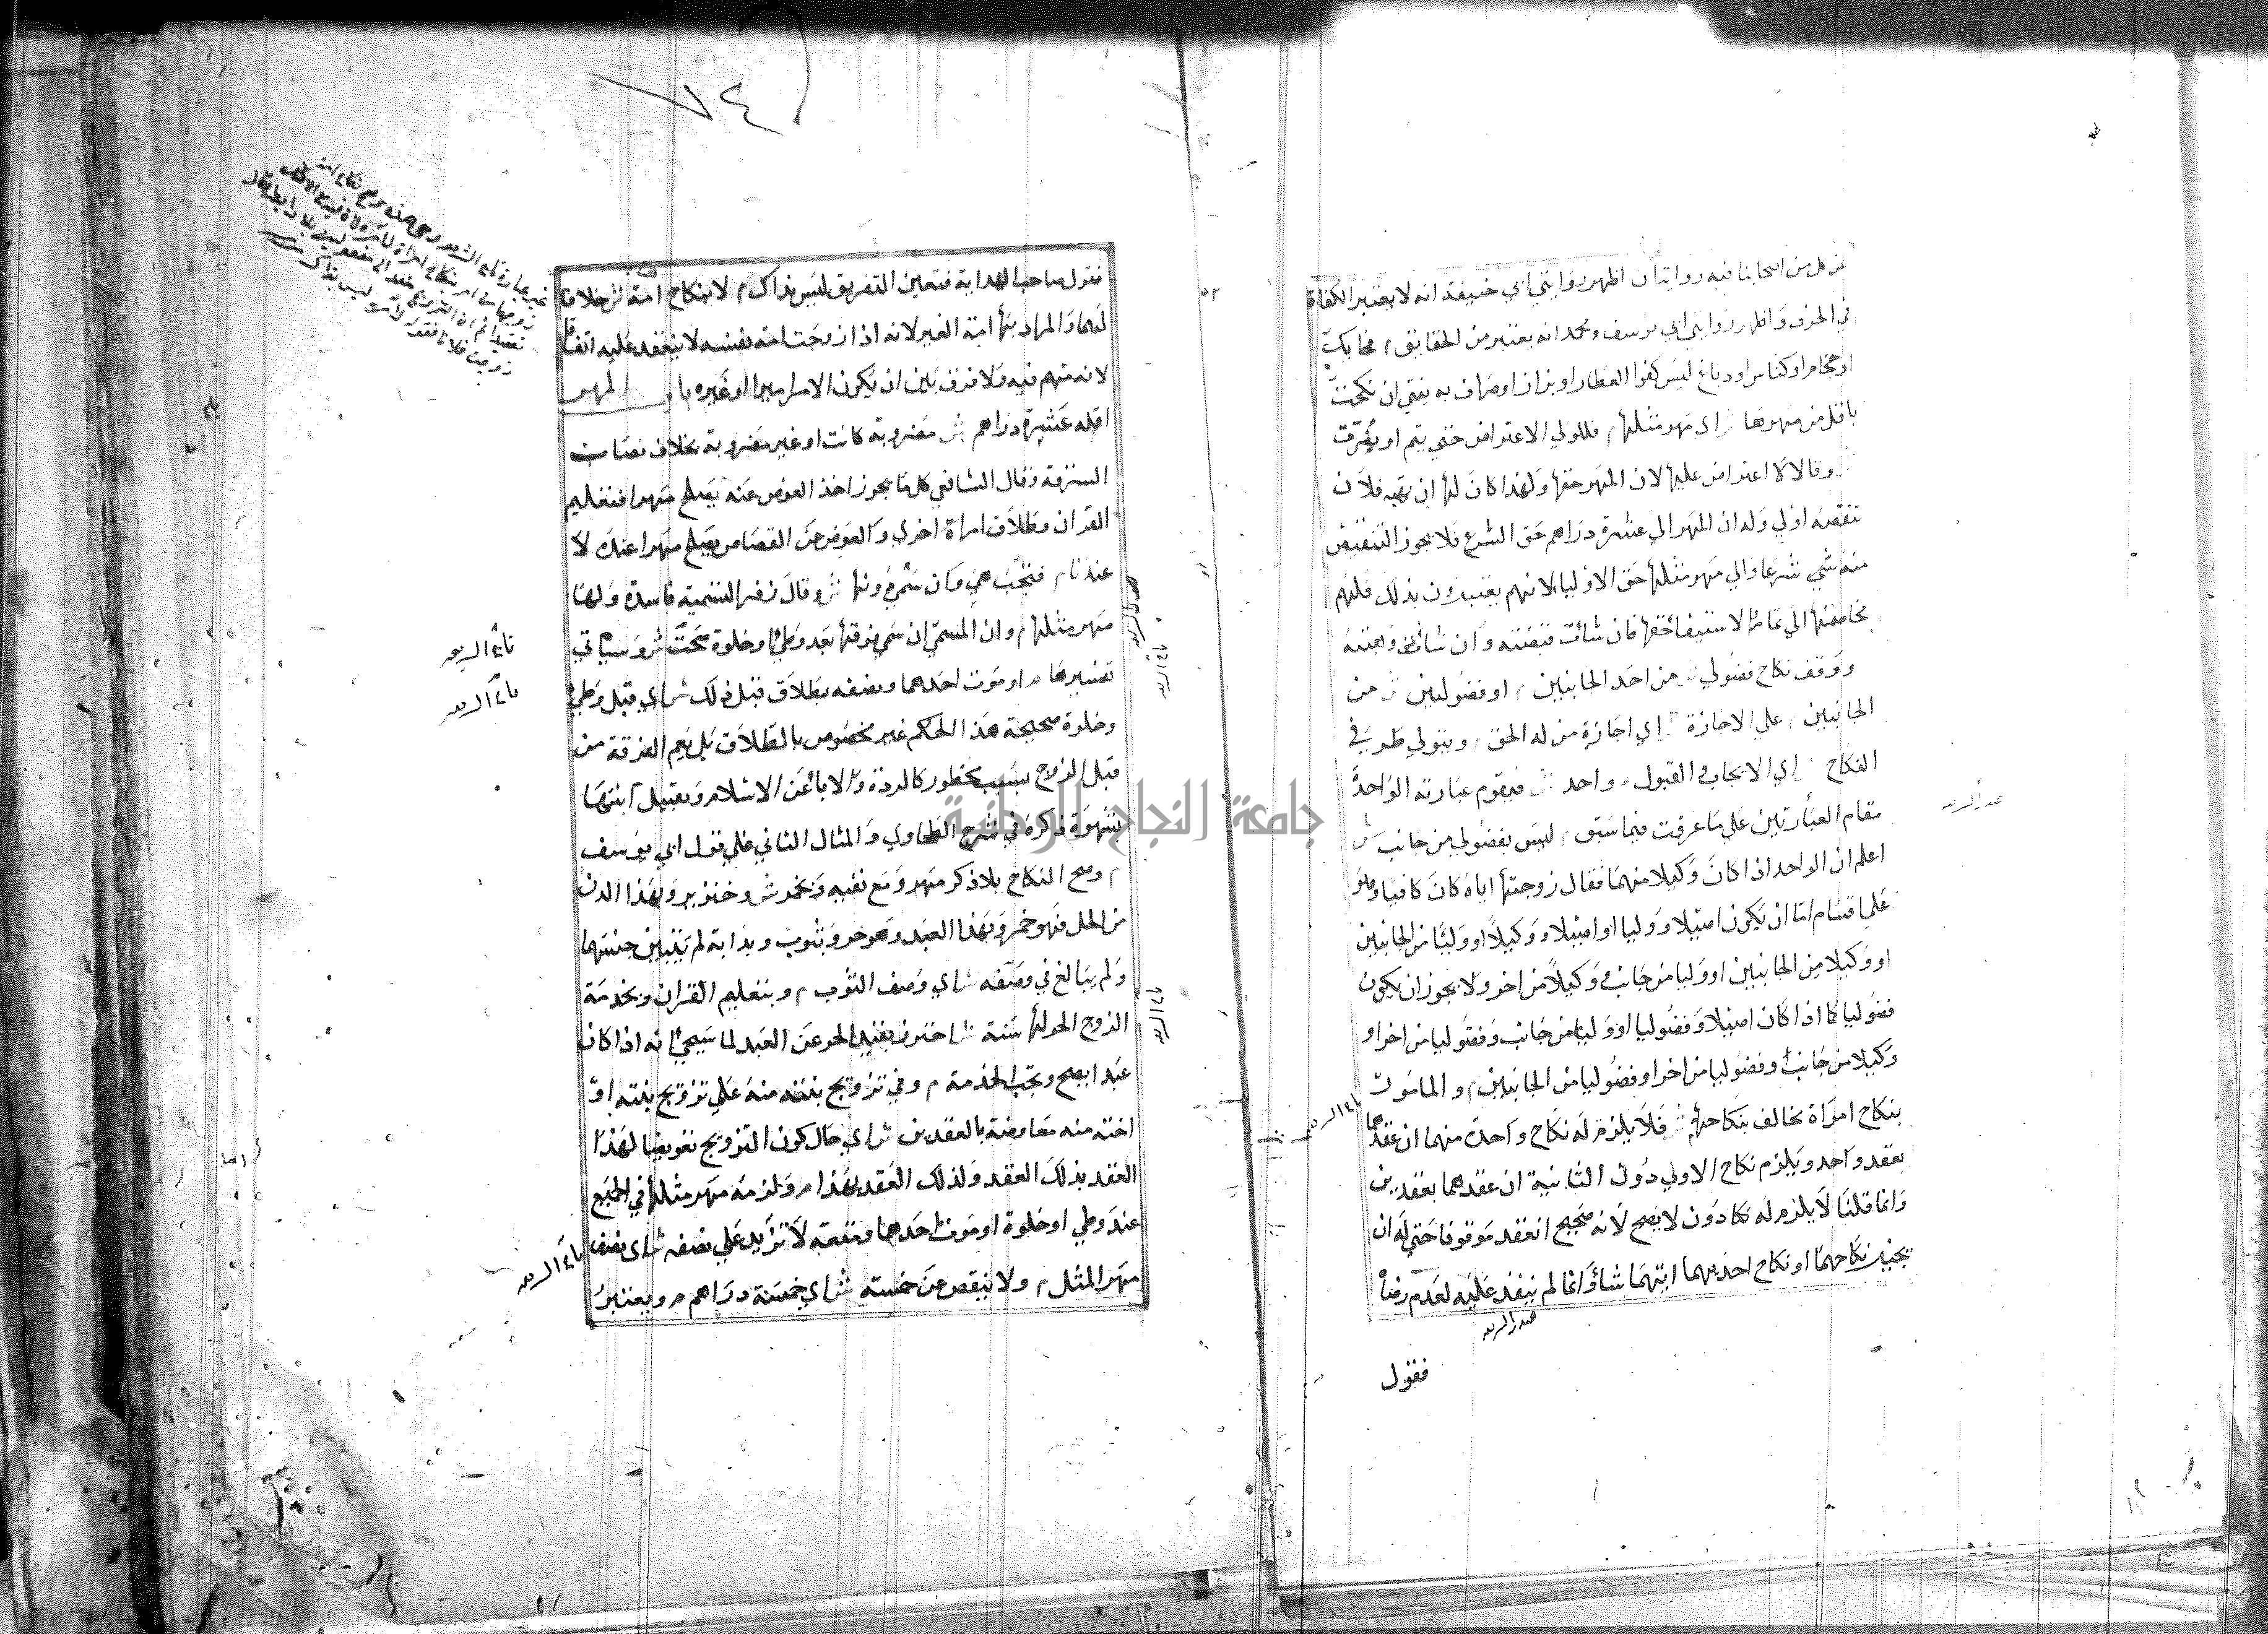 من اصحابنا فيه روايتان اظهر روايتي ابي حنيفة انه لا يعتبر الكفاة
في الحرف واظهر روايتي ابي يوسف ومحمد انه يعتبر من الحقايق م فحايك
او حجام او كناس او دباغ ليس كفوا لعطار او بزاز او صراف به يفتي ان نكحت
باقل من مهرها اي مهر مثلها م فللولي الاعتراض حتي يتم او يفرق
وقالا لا اعتراض عليها لان المهر حقها ولهذا كان لها ان تهبه فلان
تنقصه اولي وله ان المهر الي عشرة دراهم حق الشرع فلا يجوز التنقيص
منه شرعا والي مهر مثلها حق الاوليا لانهم يعتبرون بذلك فلهم
مخاصمتها الي تمامه لاستيفا حقها فان شات قبضته وان شات وهبته
ووقف نكاح فضولي من احد الجانبين م او فضوليين ش من
الجانبين م علي الاجازة اي اجازة من له الحق م ويتولي طرفي
النكاح اي الايجاب والقبول م واحد ش فيقوم عبارته الواحدة
مقام العبارتين علي ما عرفت فيما سبق م ليس بفضولي من جانب ش
اعلم ان الواحد اذا كان وكيلا منهما فقال زوجتها اياه كان كافيا وهو
علي اقسام اما ان يكون اصيلا ووليا او اصيلا ووكيلا او وليا من الجانبين
او وكيلا من الجانبين او وليا من جانب ووكيلا من اخر ولا يجوز ان يكون
فضوليا كما اذا كان اصيلا وفضوليا او وليا من جانب وفضوليا من اخر او
وكيلا من جانب وفضوليا من اخر او فضوليا من الجانبين م والمامور
بنكاح امراة مخالف بنكاحه ش فلا يلزم له نكاح واحدة منهما ان عقدهما
بعقد واحد ويلزم نكاح الاولي دون الثانية ان عقدهما بعقدين
وانما قلنا لا يلزم له نكا دون لا يصح لانه صحيح انعقد موقوفا حتي له ان
يجيز نكاحهما او نكاح احديهما ايتهما شا وانما لم ينفذ عليه لعدم رضا
صدر الشريعه
فقول
٧٤
فقول صاحب الهداية فتعين التفريق ليس بذاك م لا بنكاح امة ش خلافا
لهما والمراد بها امة الغير لانه اذا زوجت امته نفسه لا ينفذ عليه اتفاقا
لانه متهم فيه ولا فرق بين ان يكون الامر اميرا او غيره باب المهر
اقله عشرة دراهم ش مضروبة كانت او غير مضروبة بخلاف نصاب
السرقة وقال الشافعي كل ما يجوز اخذ العوض عنه يصلح مهرا فتعليم
القران وطلاق امراة اخري والعوض عن القصاص يصلح مهرا عنده لا
عندنا م فتجب هي وان سمي دونها ش وقال زفر التسمية فاسدة ولها
مهر مثلها م وان المسمي ان سمي فوقها بعد وطي او خلوة صحت ش وسياتي
تفسيرها م او موت احدهما ونصفه بطلاق قبل ذلك ش اي قبل وطي
وخلوة صحيحة هذا الحكم غير مخصوص بالطلاق بل يعم الفرقة من
قبل الزوج بسبب محظور كالردة والابا عن الاسلام وتقبيل ابنتها
بشهوة ذكره في شرح الطحاوي والمثال الثاني علي قول ابي يوسف
م وصح النكاح بلا ذكر مهر ومع نفيه وبخمر ش وخنزير وبهذا الدن
من الخل فهو خمر وبهذا العبد وهو حر وبثوب وبدابة لم يتبين جنسهما
ولم يبالغ في وصفه ش اي وصف الثوب م وبتعليم القران وبخدمة
الزوج الحر لها سنة ش احترز بقيد الحر عن العبد لما سيجي انه اذا كان
عبدا يصح وتجب الخدمة م وفي تزويج بنته منه علي تزويج بنته او
اخته منه معاوضة بالعقدين ش اي حال كون التزويج تعويضا لهذا
العقد بذلك العقد ولذلك العقد بهذا م ولزمه مهر مثلها في الجميع
عند وطي او خلوة او موت احدهما ومتعة لا تزيد علي نصفه ش اي نصف
مهر المثل م ولا ينقص عن خمسة ش اي خمسة دراهم م ويعتبر
تاج الشريعه
تاج الشريعه
تاج الشريعه
جامعة النجاح الوطنية